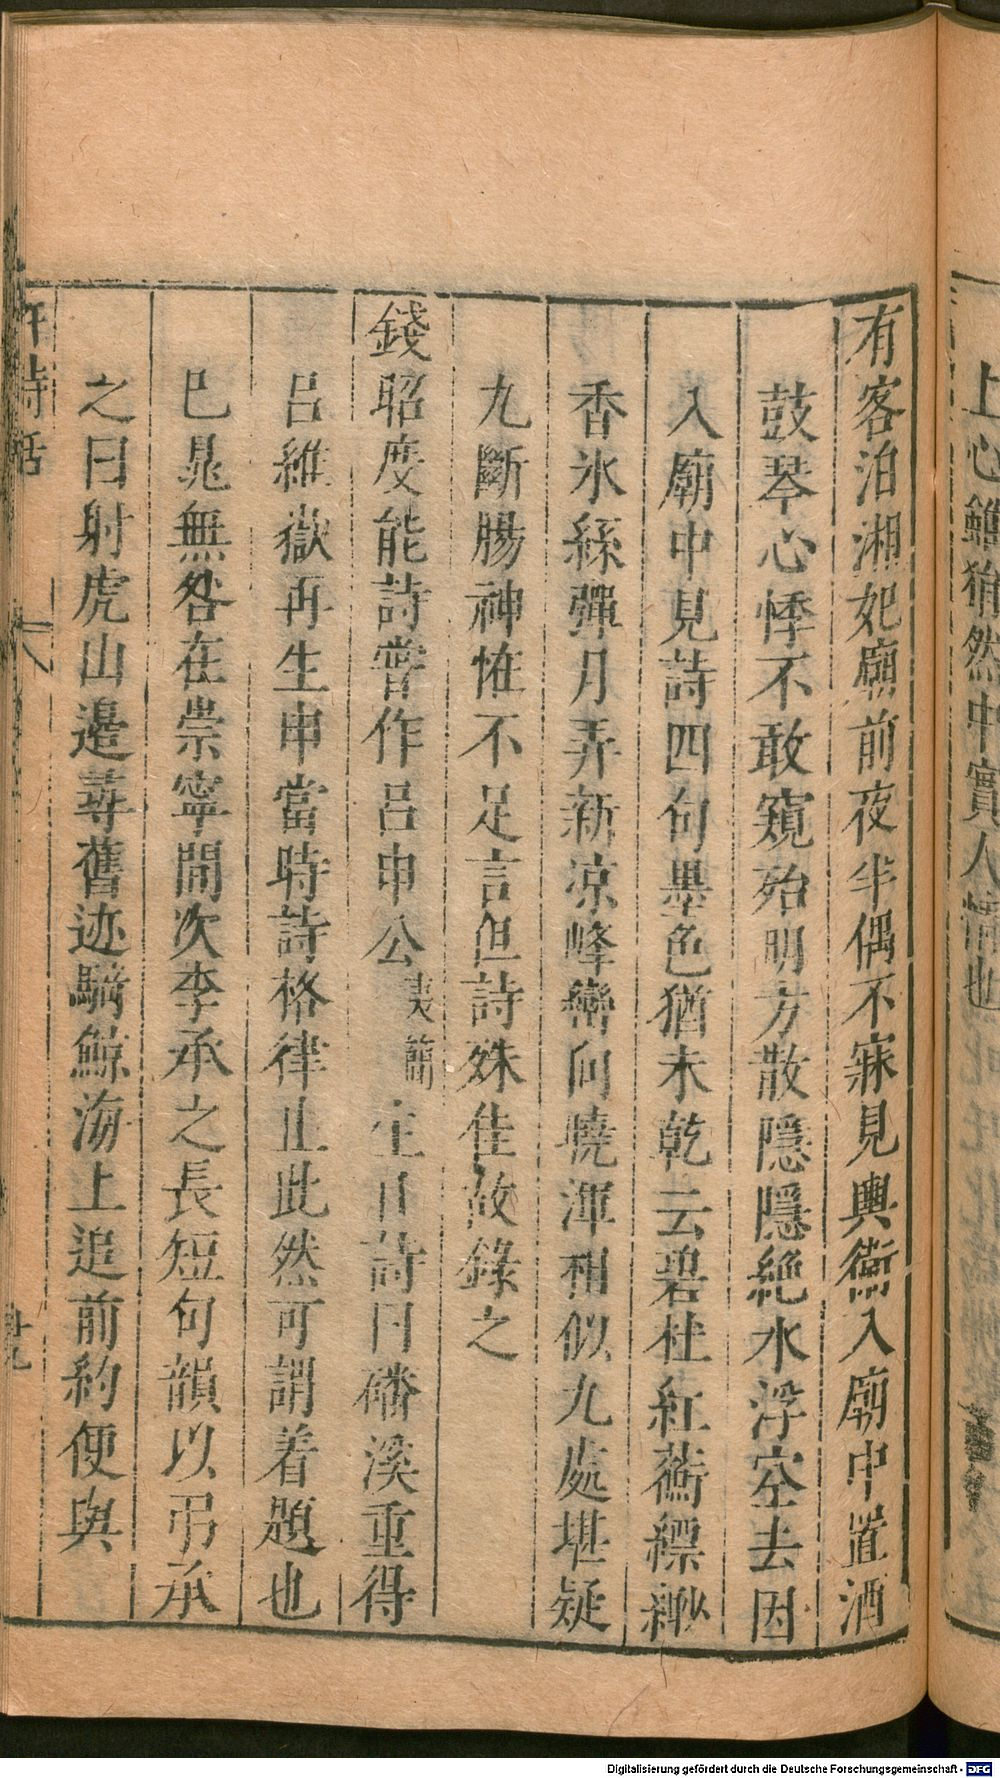 上心雖猶然中實人情也
有客泊湘妃廟前夜半偶不寐見輿衛入廟中置酒
鼓琴心悸不敢窺殆明方散隱隱絶水浮空去因
入廟中見詩四句墨色猶未乾云碧杜紅蘅縹緲
香氷絲彈月弄新涼峰巒向曉渾相似九處堪疑
九斷腸神怪不足言但詩殊佳故錄之
錢昭度能詩嘗作呂申公夷簡生日詩曰磻溪重得
呂維嶽再生申當時詩格律止此然可謂着題也
巳晁無咎在崇寧間次李承之長短句韻以弔承
之曰射虎山邊尋舊迹騎鯨海上追前約便與
許詩話
廿九
Digitalisierung gefördert durch die Deutsche Forschungsgemeinschaft - DFG